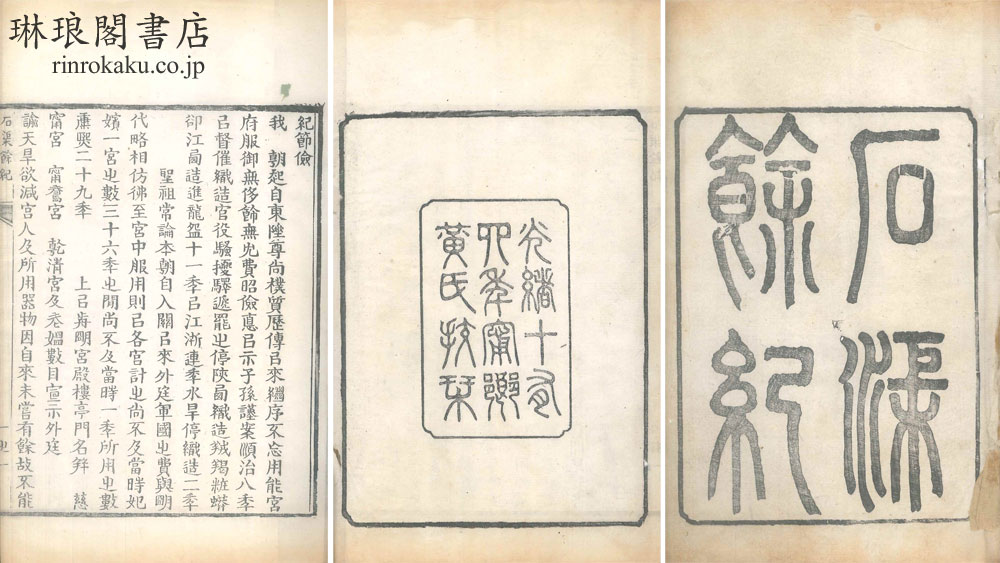 琳琅閣書店
rinrokaku.co.jp
石渠
餘紀
光緒十有
四季甯鄉
黃氏挍栞
紀節儉
我　朝起自東陲尊尚樸質歷傳㠯來繼序不忘用能宮
府服御無侈餙無宂費昭儉悳㠯示子孫謹案順治八季
㠯督催織造官役騷擾驛遞罷㞢停陝卥織造羢羯粧蟒
卻江卥造進龍盌十一季㠯江浙連季水旱停織造二季
聖祖常論本朝自入關㠯來外廷軍國㞢費與朙
代略相仿彿至宮中服用則㠯各宮計㞢尚不及當時妃
嬪一宮㞢數三十六季㞢閒尚不及當時一季所用㞢數
康熙二十九季　上㠯歬朙宮殿樓亭門名　慈
甯宮　甯壽宮　乾清宮及老媪數目宣示外廷
諭天旱欲減宮人及所用器物因自來未嘗有餘故不能
石渠餘紀